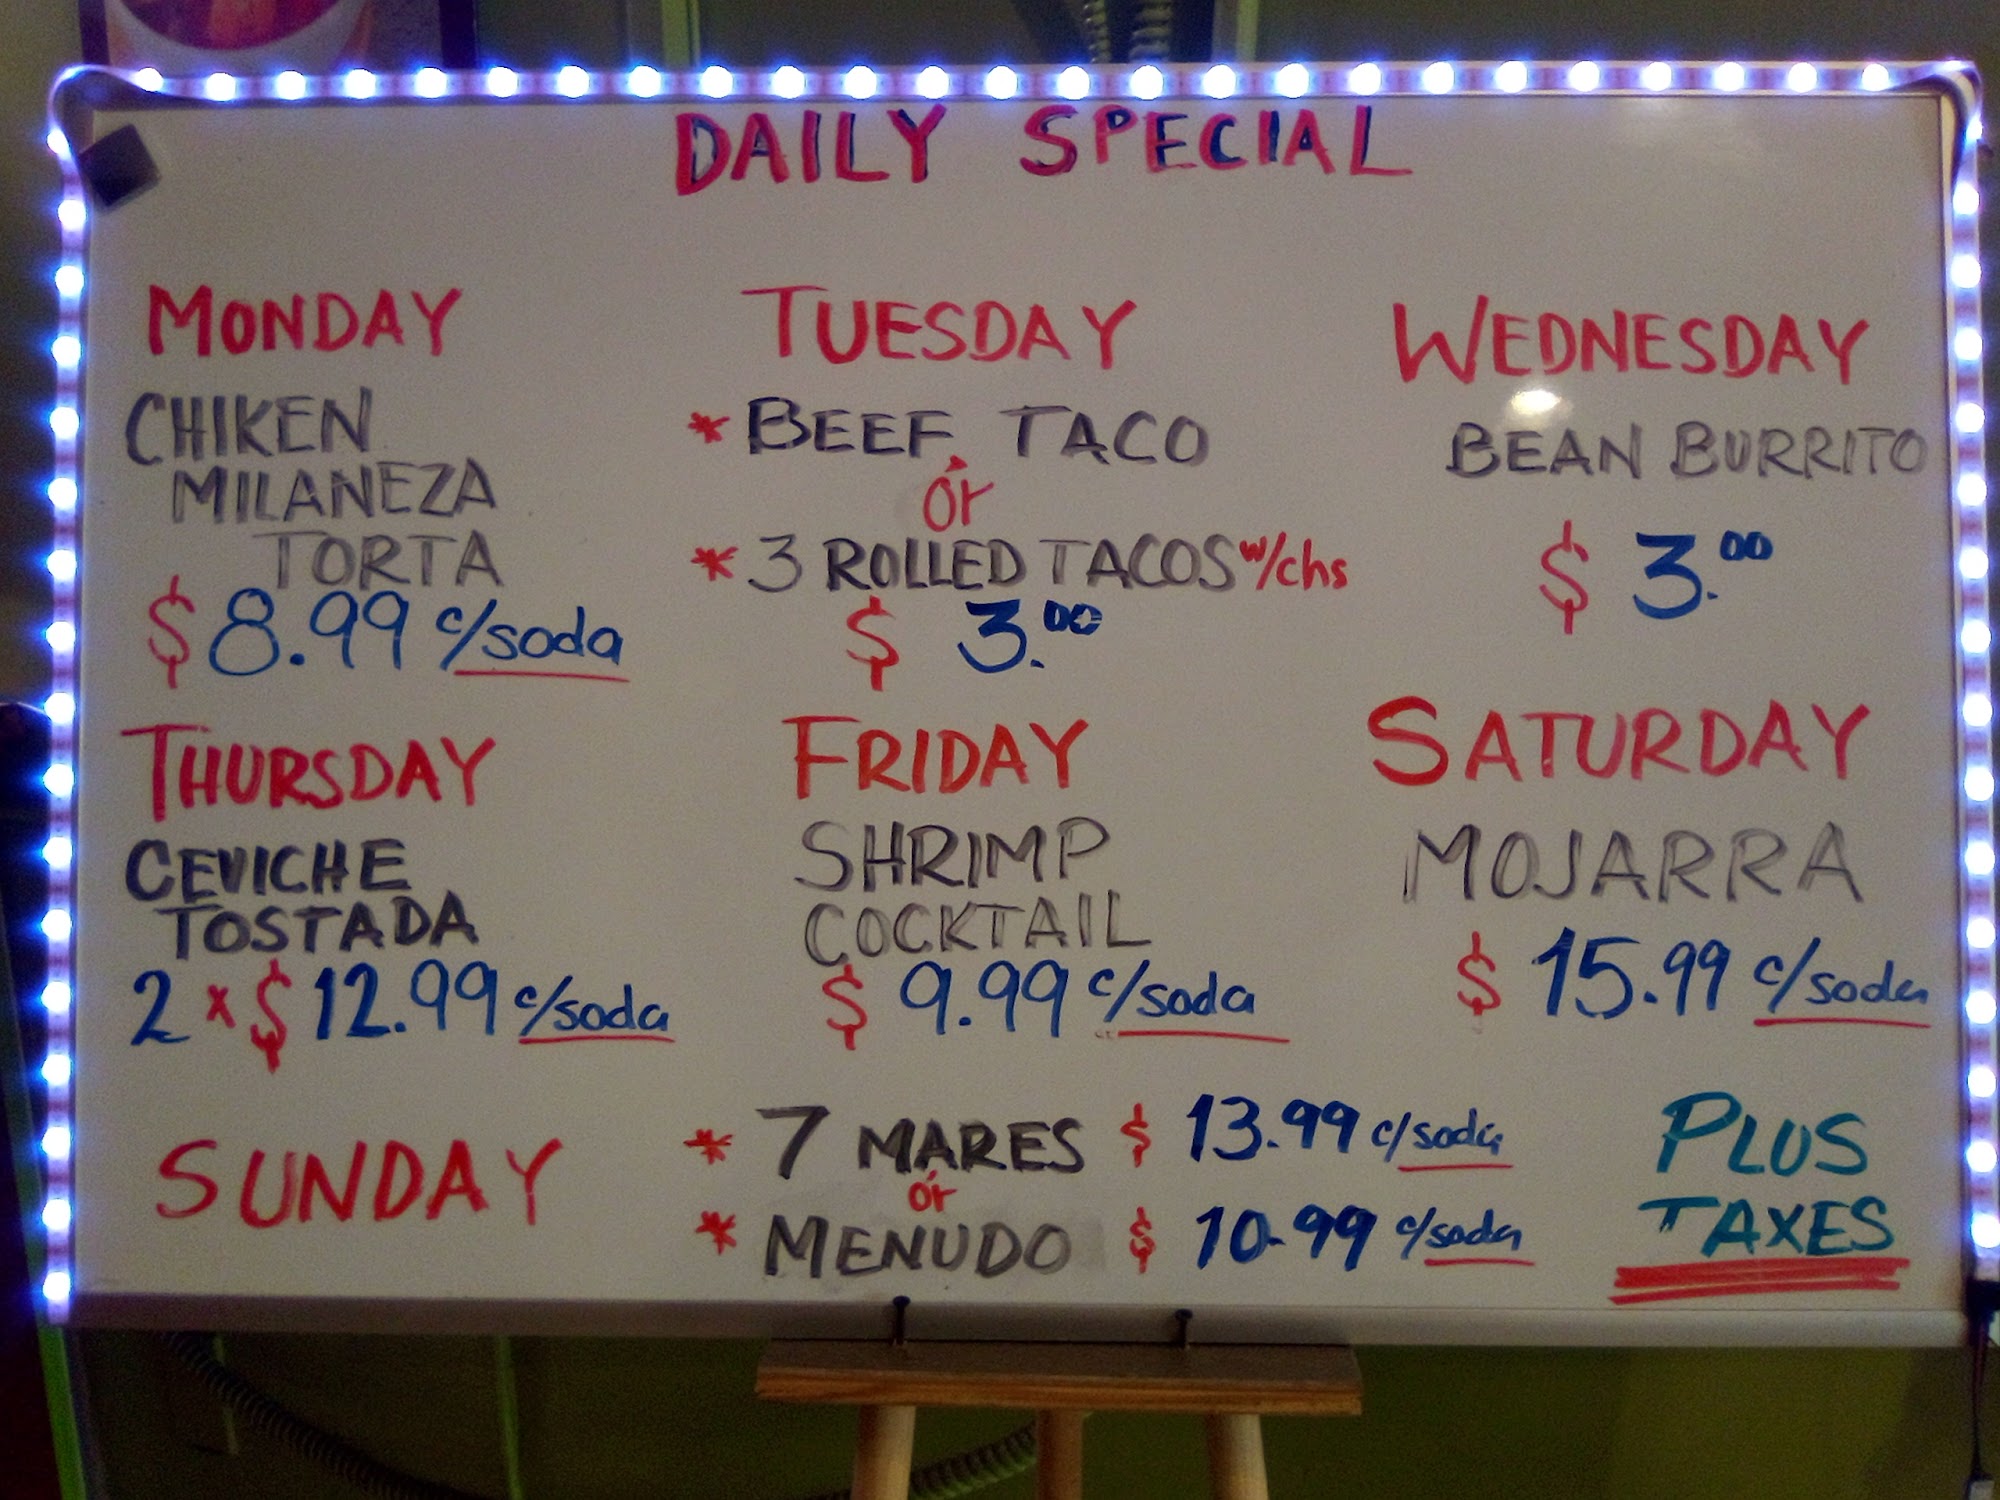 DAILY SPECIAL
MONDAY
CHIKEN
MILANEZA
TORTA
$ 8.99 c/soda
TUESDAY
* BEEF TACO
or
* 3 ROLLED TACOS w/chs
$ 3.00
WEDNESDAY
BEAN BURRITO
$ 3.00
THURSDAY
CEVICHE
TOSTADA
2 x $ 12.99 c/soda
FRIDAY
SHRIMP
COCKTAIL
$ 9.99 c/soda
SATURDAY
MOJARRA
$ 15.99 c/soda
SUNDAY
* 7 MARES $ 13.99 c/soda
or
* MENUDO $ 10.99 c/soda
PLUS
TAXES